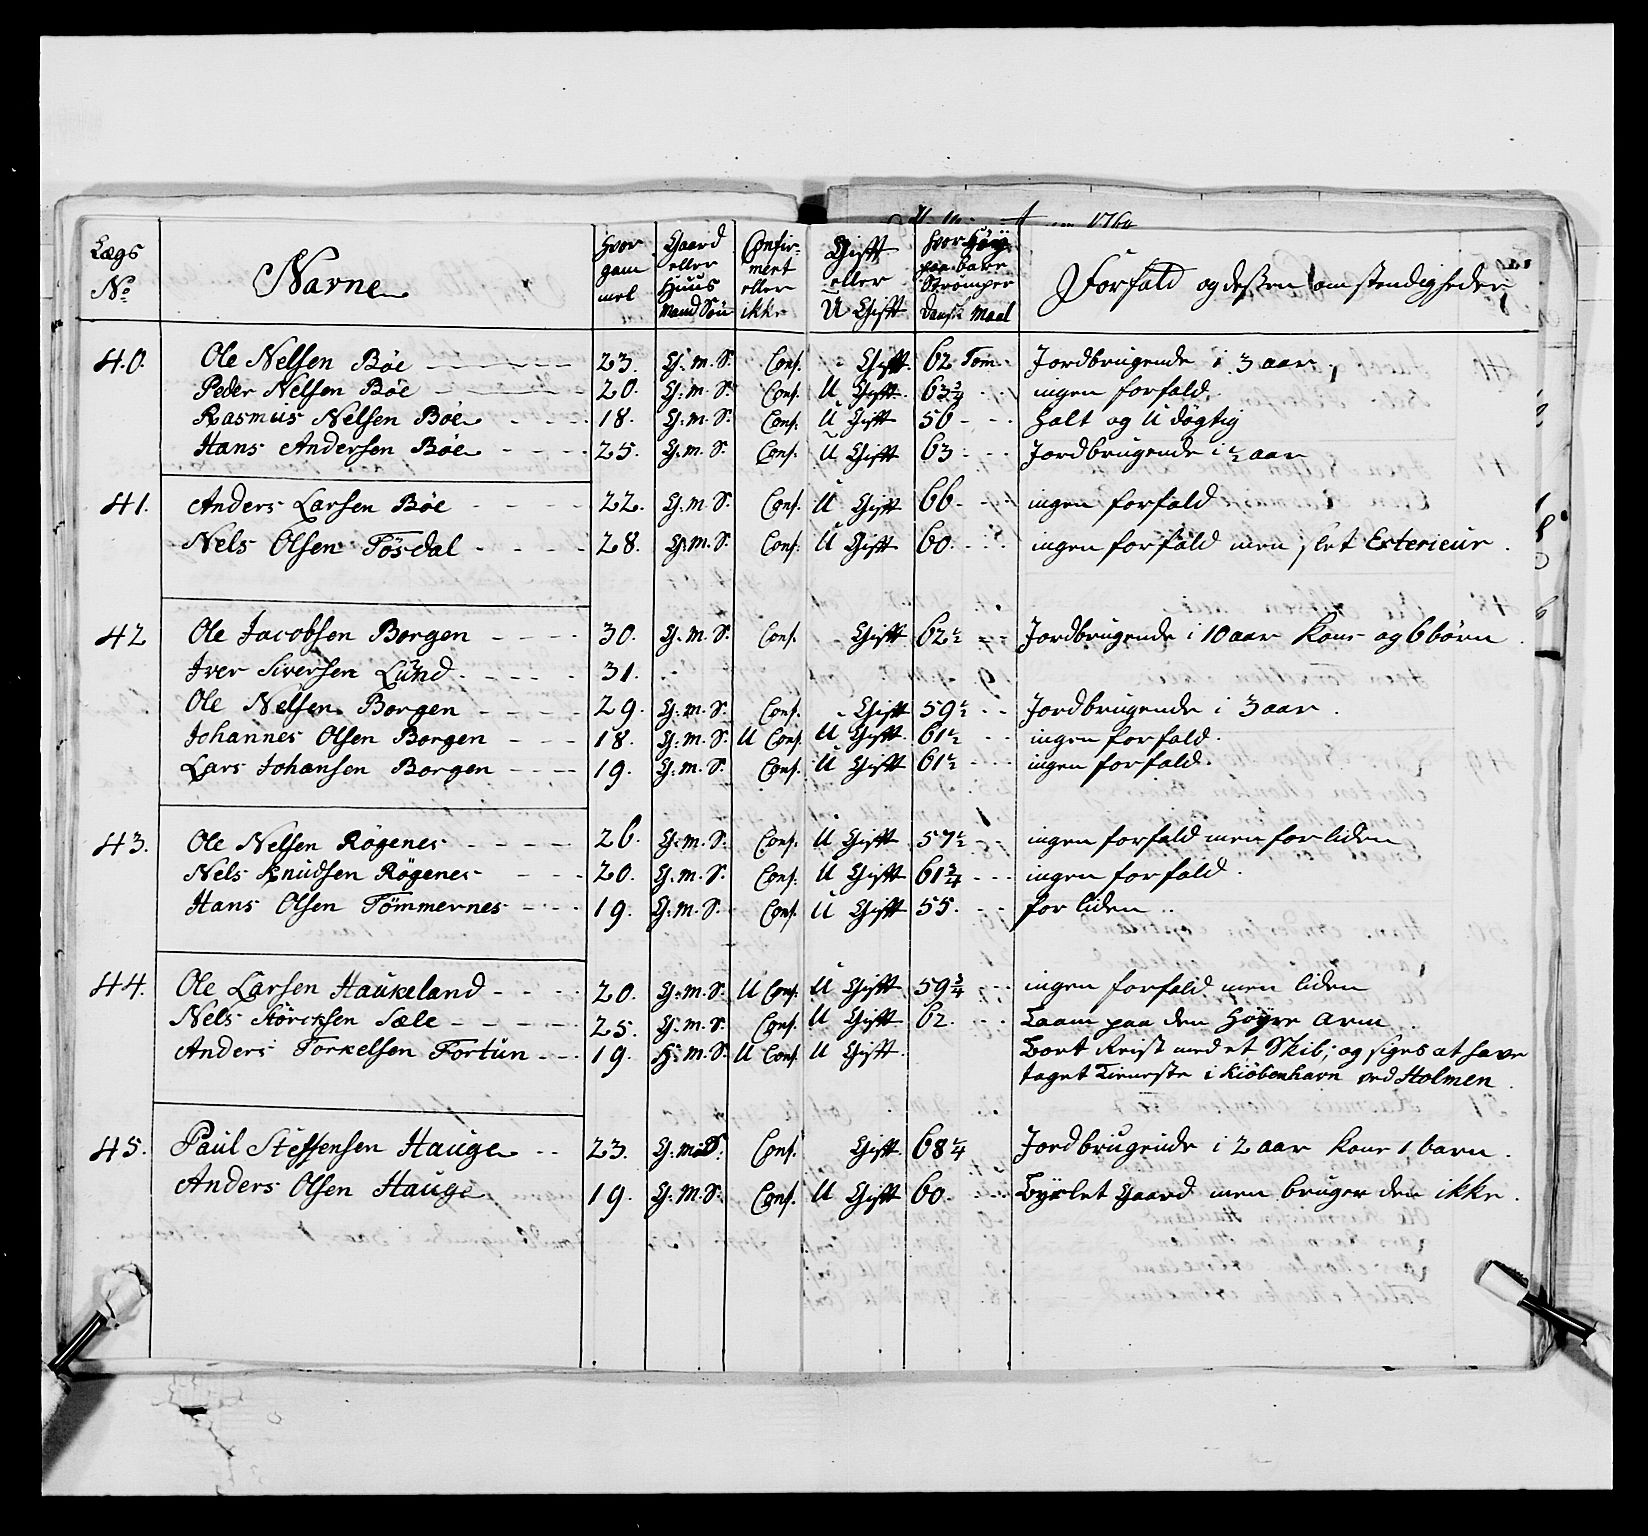 Lægs No | Navne | Hvor gam mel | Gaard eller Huus Mand Søn | Confir- mert eller ikke | Gift eller U Gift | hvor Høy paa bare Strømper Dansk Maal | Forfald og dessen omstendigheder
40. Ole Nelsen Böe 23. G: m. S. Conf. Gift 62 Tom: Jordbrugende i 3 aar
Peder Nelsen Böe 20. G: m. S. Conf. U Gift 63 3/4 ingen forfald.
Rasmus Nelsen Böe 18. G: m. S. Conf. U Gift 56 halt og Udögtig
Hans Andersen Böe 25. G: m. S. Conf. U Gift 63 Jordbrugende i 1/2 aar
41. Anders Larsen Böe 22. G. m. S. Conf. U Gift 66 ingen forfald
Nels Olsen Tösdal 28. G. m. S. Conf. U Gift 60 ingen forfald men slet Exterieur.
42 Ole Jacobsen Borgen 30. G. m. S. Conf. Gift 62 1/2 Jordbrugende i 10 aar Kone og 6 börn.
Iver Siversen Lund 31.
Ole Nelsen Borgen 29. G. m. S. Conf. Gift 59 1/2 Jordbrugende i 3 aar.
Johannes Olsen Borgen 18. G. m. S. U Conf. U Gift 61 1/2 ingen forfald.
Lars Johansen Borgen 19. G. m. S. Conf. U Gift 61 1/2 ingen forfald.
43. Ole Nelsen Rögenes 26. G: m. S. Conf. U Gift 57 1/2 ingen forfald men for liden
Nels Knudsen Rögenes 20. G. m. S. Conf. U Gift 61 3/4 ingen forfald.
Hans Olsen Tömmernes 19. G. m. S. Conf. U Gift 55. for liden.
44. Ole Larsen Haukeland 20. G. m. S. U Conf. U Gift 59 3/4 ingen forfald men liden
Nels Störcksen Sæle 25. G. m. S. Conf. U Gift 62. Laam paa den høyre arm.
Anders Torkelsen Fortun 19. H: m. S. U Conf. U Gift. Bort Reist med et Skib; og siges at have
taget Tieneste i Kiöbenhavn ved Holmen.
45. Paul Steffensen Hauge 23. G. m. S. Conf. Gift 68 1/4 Jordbrugende i 2 aar Kone 1 barn.
Anders Olsen Hauge 19. G. m. S. Conf. U Gift 60. Byxlet Gaard men bruger den ikke.